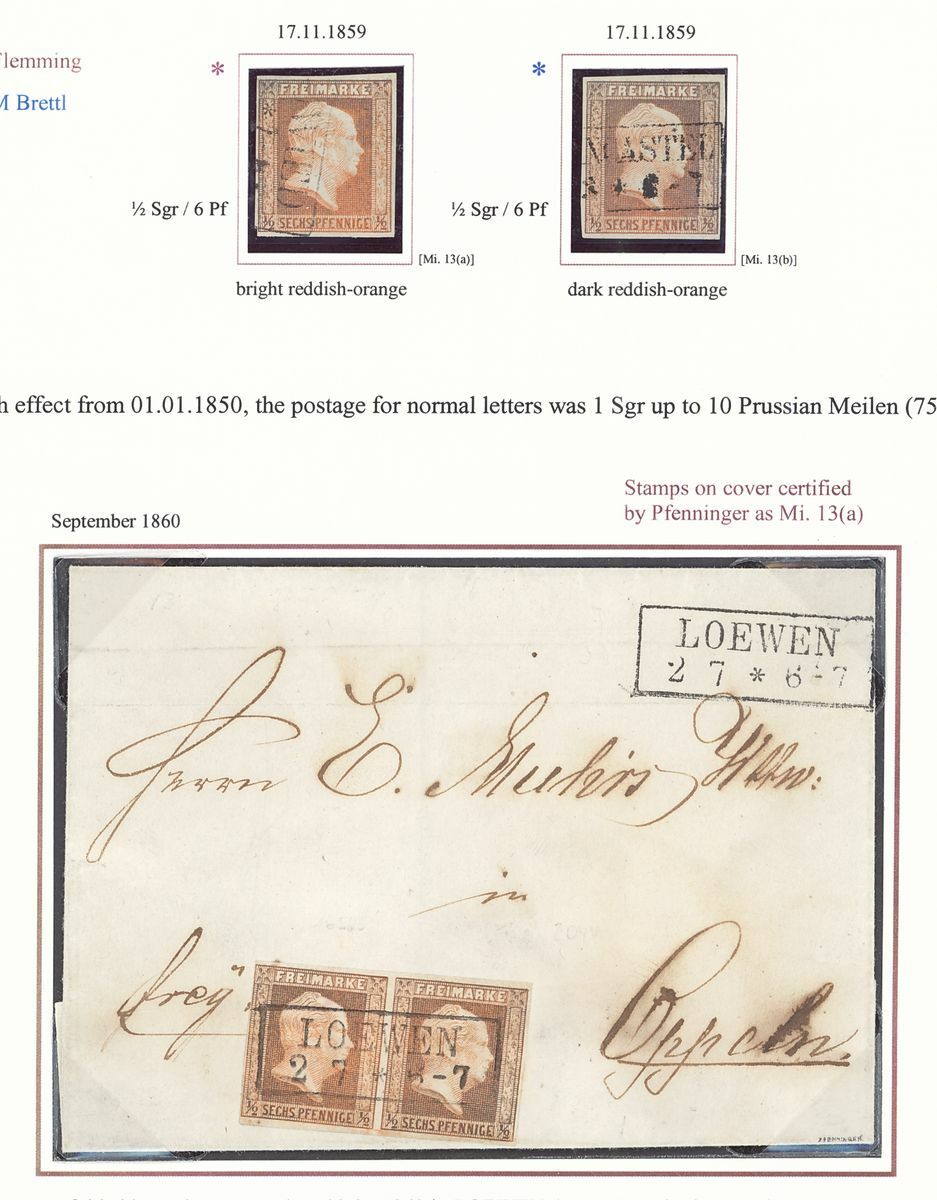 17.11.1859
17.11.1859
Flemming
* *
M Brettl
FREIMARKE
FREIMARKE
½ Sgr / 6 Pf
½ Sgr / 6 Pf
½ SECHS PFENNIGE ½
½ SECHS PFENNIGE ½
[Mi. 13(a)]
[Mi. 13(b)]
bright reddish-orange
dark reddish-orange
h effect from 01.01.1850, the postage for normal letters was 1 Sgr up to 10 Prussian Meilen (75
Stamps on cover certified
by Pfenninger as Mi. 13(a)
September 1860
LOEWEN
2 7 * 6-7
Herrn E. Muhrs Wttw:
in
frey
Oppeln.
FREIMARKE
FREIMARKE
LOEWEN
2 7 * 6-7
½ SECHS PFENNIGE ½
½ SECHS PFENNIGE ½
PFENNINGER